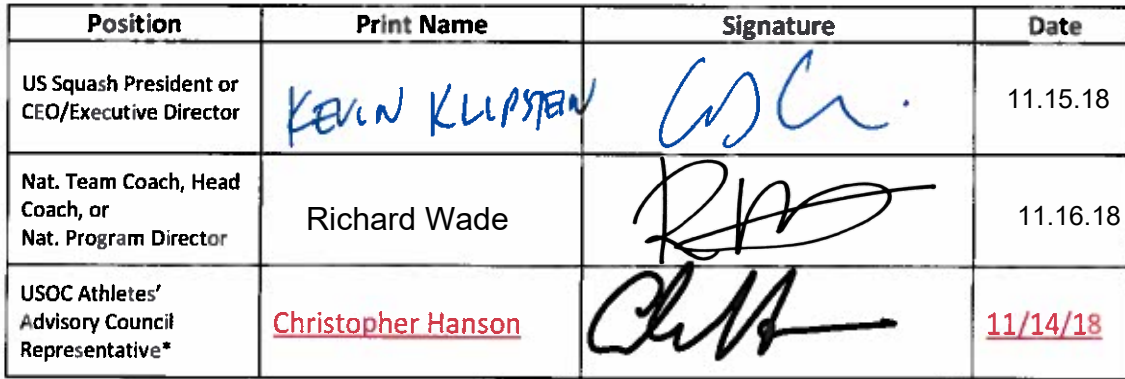 Position Print Name Signature Date
US Squash President or
CEO/Executive Director
KEVIN KLIPSTEIN
11.15.18
Nat. Team Coach, Head
Coach, or
Nat. Program Director
Richard Wade
11.16.18
USOC Athletes'
Advisory Council
Representative*
Christopher Hanson
11/14/18